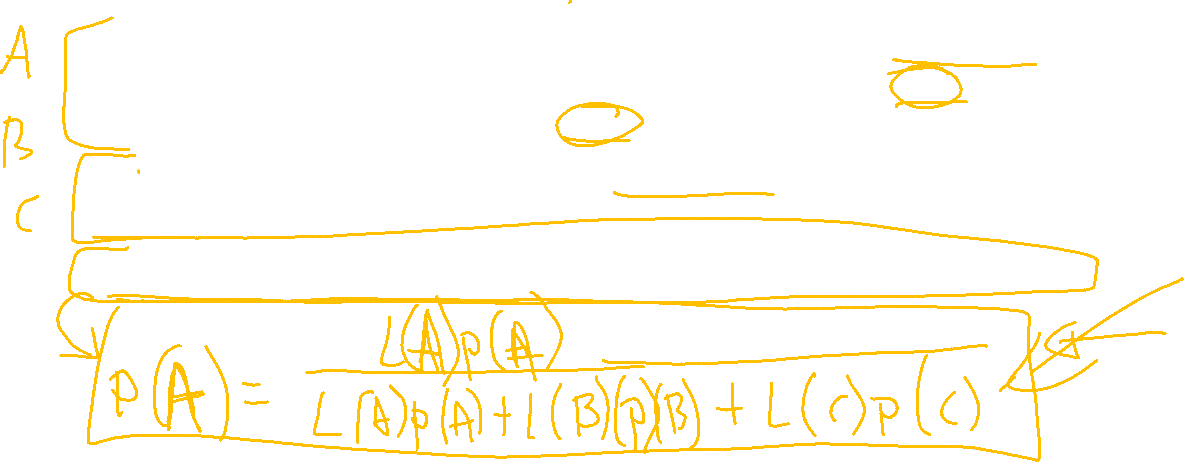 A
B
C
p(A) = L(A)p(A) / L(A)p(A)+L(B)(p)(B)+L(C)p(C)